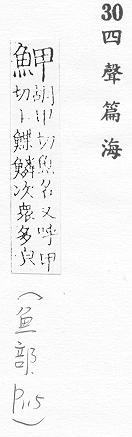 30 四聲篇海
魻
胡甲切魚名又呼甲
切卜鰈鱗次衆多皃
(鱼部 P115)